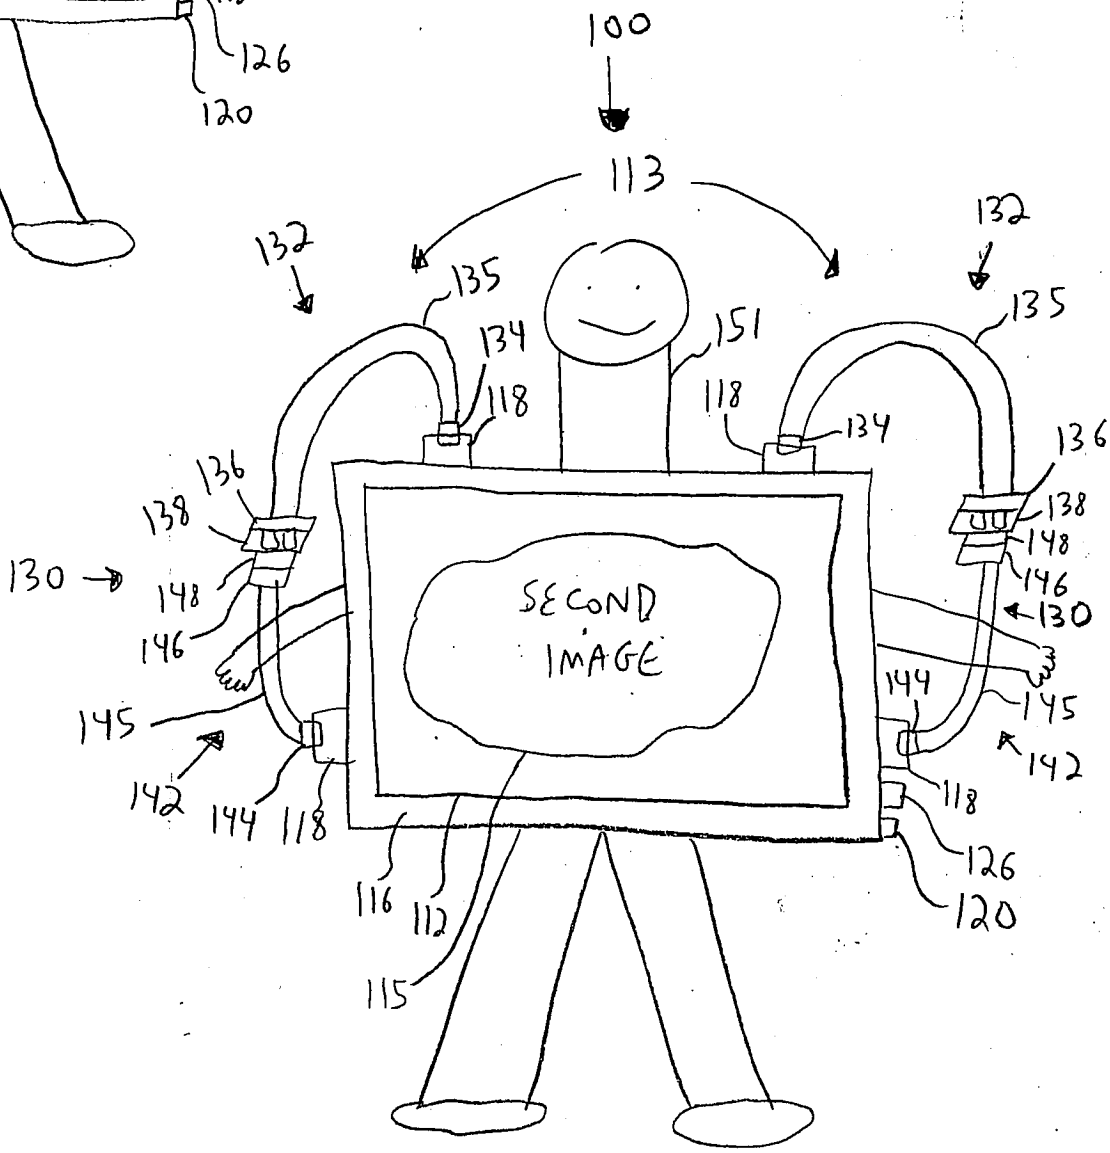 126
120
100
113
132
132
135
135
134
151
118
118
134
136
136
138
138
148
130
148
146
146
130
SECOND
IMAGE
144
145
145
142
142
144
118
118
126
116
112
120
115